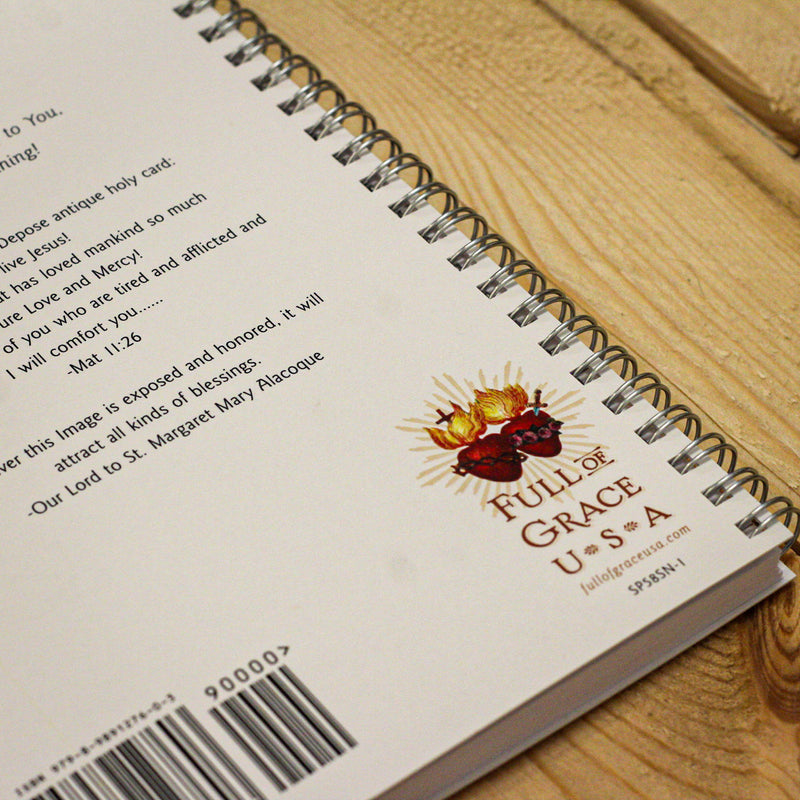 to You,
hing!
Depose antique holy card:
live Jesus!
at has loved mankind so much
ure Love and Mercy!
of you who are tired and afflicted and
I will comfort you......
-Mat 11:26
ver this Image is exposed and honored, it will
attract all kinds of blessings.
-Our Lord to St. Margaret Mary Alacoque
FULL OF
GRACE
U S A
fullofgraceusa.com
SPSBSN-1
ISBN 979-8-9891276-0-3
90000>